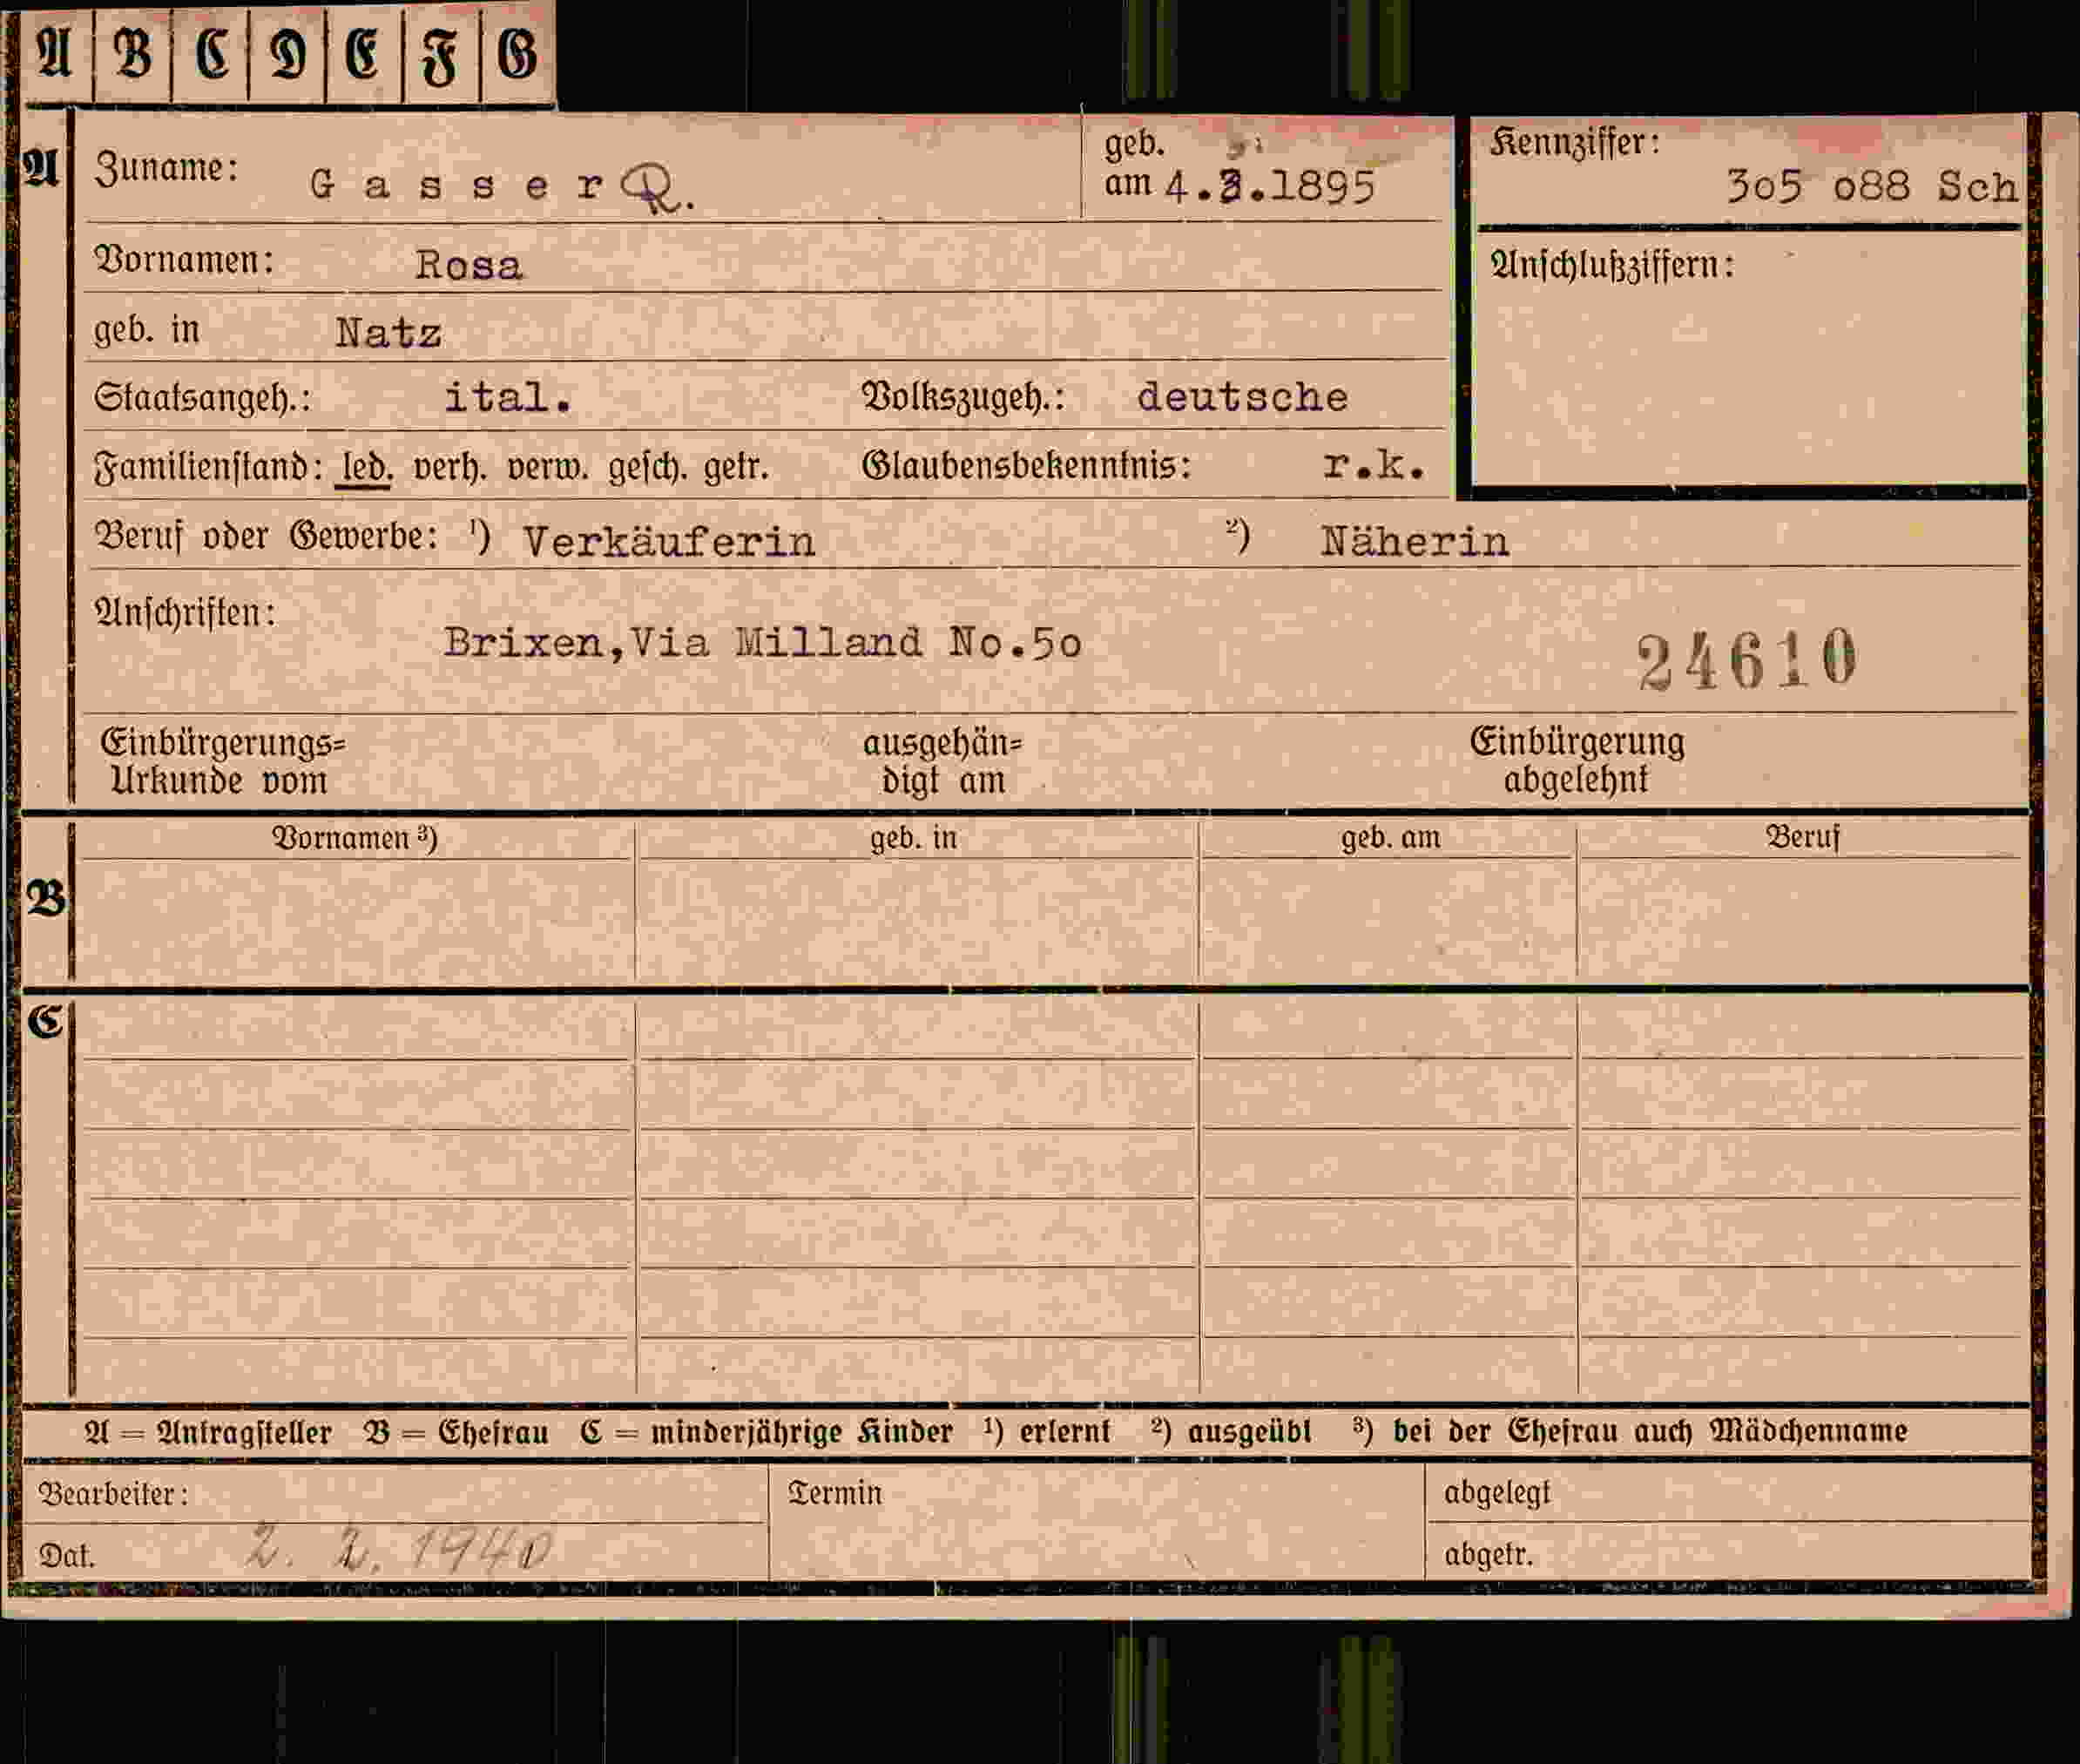 A B C D E F G
A Zuname: Gasser R. geb. am 4.3.1895 Kennziffer: 3o5 o88 Sch
Vornamen: Rosa Anschlußziffern:
geb. in Natz
Staatsangeh.: ital. Volkszugeh.: deutsche
Familienstand: led. verh. verw. gesch. getr. Glaubensbekenntnis: r.k.
Beruf oder Gewerbe: ¹) Verkäuferin ²) Näherin
Anschriften:
Brixen,Via Milland No.5o 24610
Einbürgerungs= ausgehän= Einbürgerung
Urkunde vom digt am abgelehnt
Vornamen ³) geb. in geb. am Beruf
B
C
A = Antragsteller B = Ehefrau C = minderjährige Kinder ¹) erlernt ²) ausgeübt ³) bei der Ehefrau auch Mädchenname
Bearbeiter: Termin abgelegt
Dat. 2. 2. 1940 abgetr.